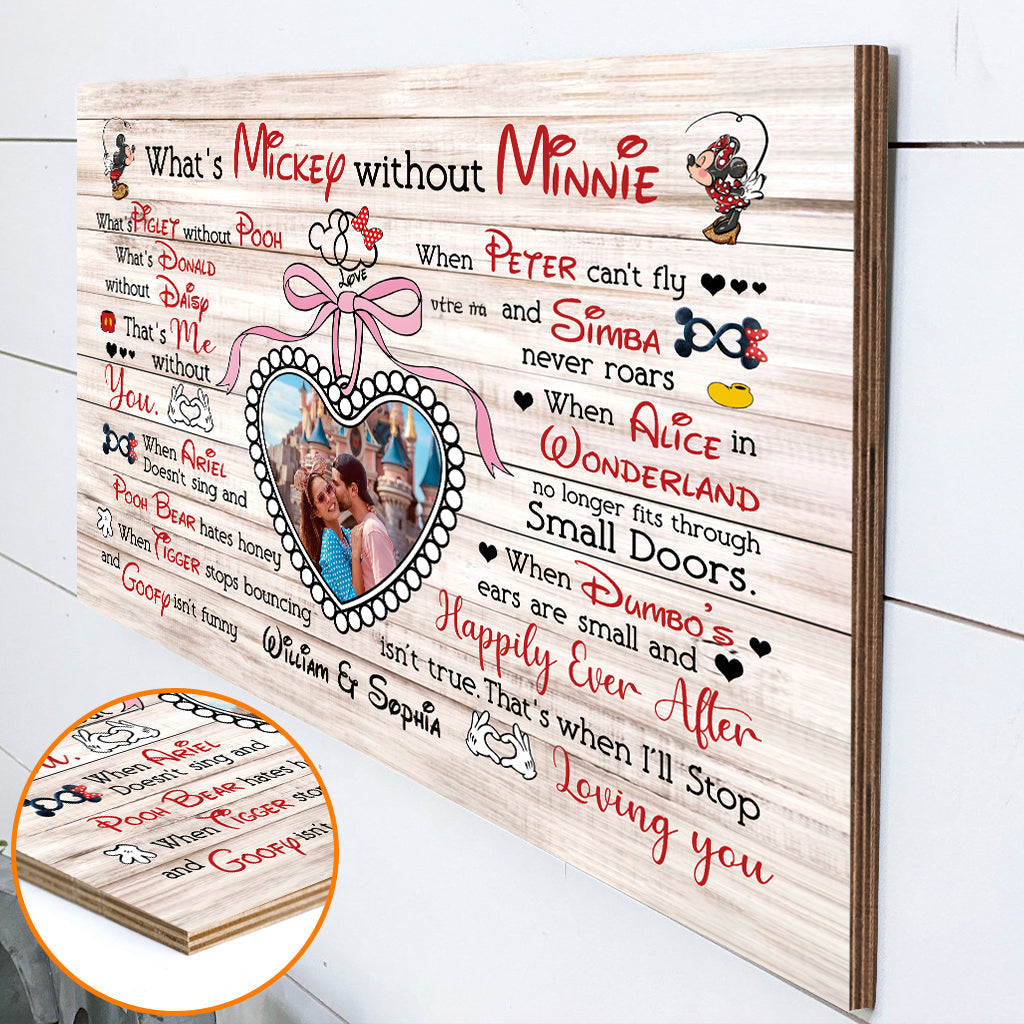 What's Mickey without Minnie
What's Piglet without Pooh
What's Donald
without Daisy
That's Me
without
You.
When Ariel
Doesn't sing and
Pooh Bear hates honey
When Tigger stops bouncing
and Goofy isn't funny
LOVE
William & Sophia
When Peter can't fly
and Simba
never roars
When Alice in
Wonderland
no longer fits through
Small Doors.
When Dumbo's
ears are small and
Happily Ever After
isn't true. That's when I'll Stop
Loving you
When Ariel
Doesn't sing and
Pooh Bear hates
When Tigger
and Goofy isn't